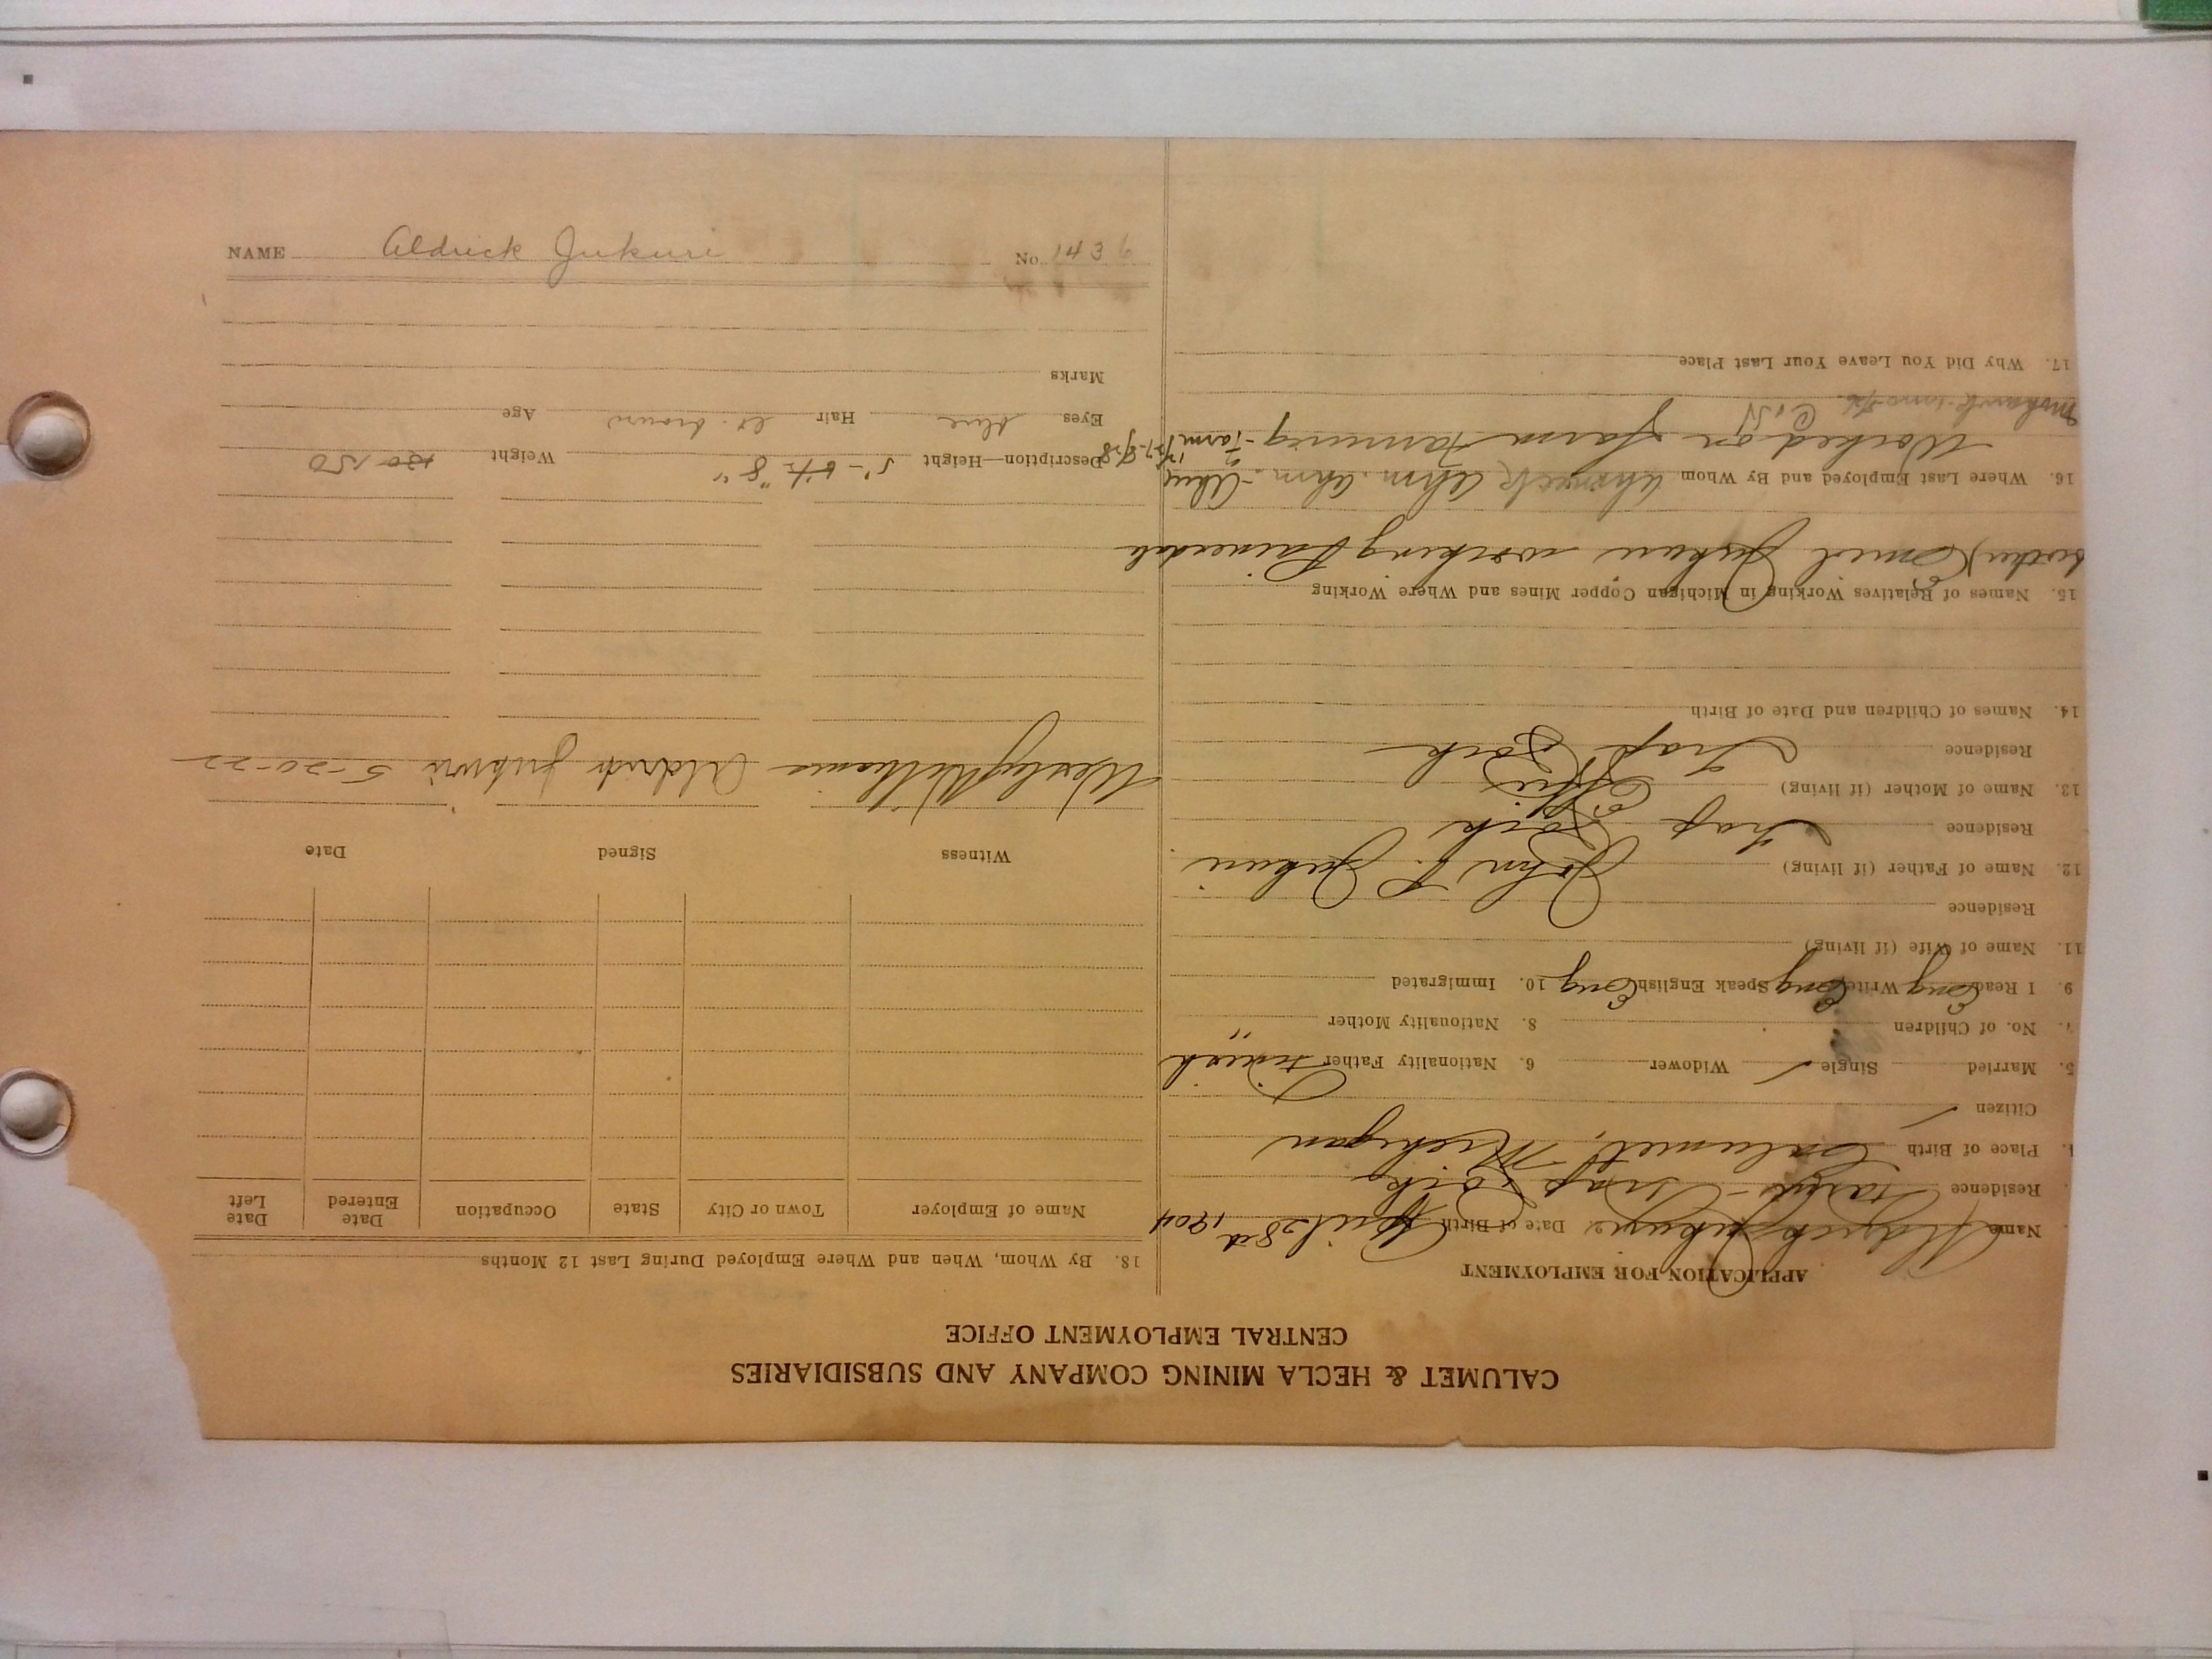 CALUMET & HECLA MINING COMPANY AND SUBSIDIARIES
CENTRAL EMPLOYMENT OFFICE
APPLICATION FOR EMPLOYMENT
Name Aldrick Jukuri Date of Birth April 28 1904
Residence Trap Rock
Place of Birth Calumet, Michigan
Citizen ✓
5. Married Single ✓ Widower 6. Nationality Father Finnish
7. No. of Children 8. Nationality Mother "
9. I Read Eng Write Eng Speak English Eng 10. Immigrated
11. Name of Wife (if living)
Residence
12. Name of Father (if living) John Jukuri
Residence Trap Rock
13. Name of Mother (if living) Effie
Residence Trap Rock
14. Names of Children and Date of Birth
15. Names of Relatives Working in Michigan Copper Mines and Where Working
brother Jukuri working Painesdale
16. Where Last Employed and By Whom Ahmeek Ahm. Ahm.
Worked on farm Farming
Mohawk
17. Why Did You Leave Your Last Place
18. By Whom, When and Where Employed During Last 12 Months
Name of Employer Town or City State Occupation Date Entered Date Left
Witness Signed Date
Wesley Williams Aldrick Jukuri 5-20-22
Description—Height 5'- 8" Weight 130 150
Eyes blue Hair lt. brown Age
Marks
NAME Aldrick Jukuri No. 1436